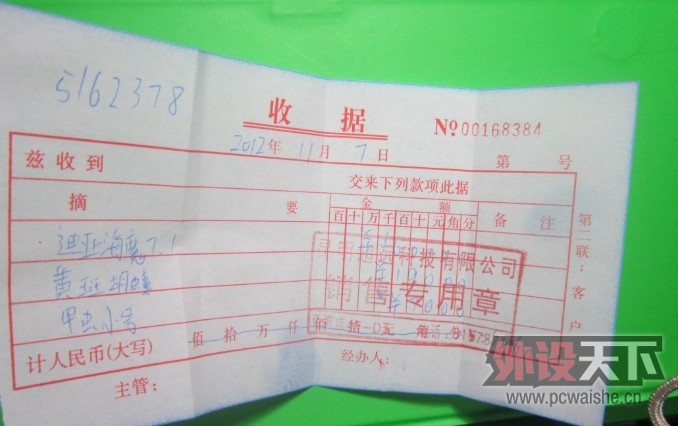 5162378
收据
№00168384
2012年 11月 7日
第 号
兹收到
交来下列款项此据
摘 要
金 额
备 注
百十万千百十元角分
迪亚海魔7.1
黄斑胡蜂
甲虫小号
科技有限公司
销售专用章
计人民币(大写) 佰 拾 万 仟 佰 拾 元 角 分
主管:
经办人:
第二联:客户
外设天下
www.pcwaishe.cn